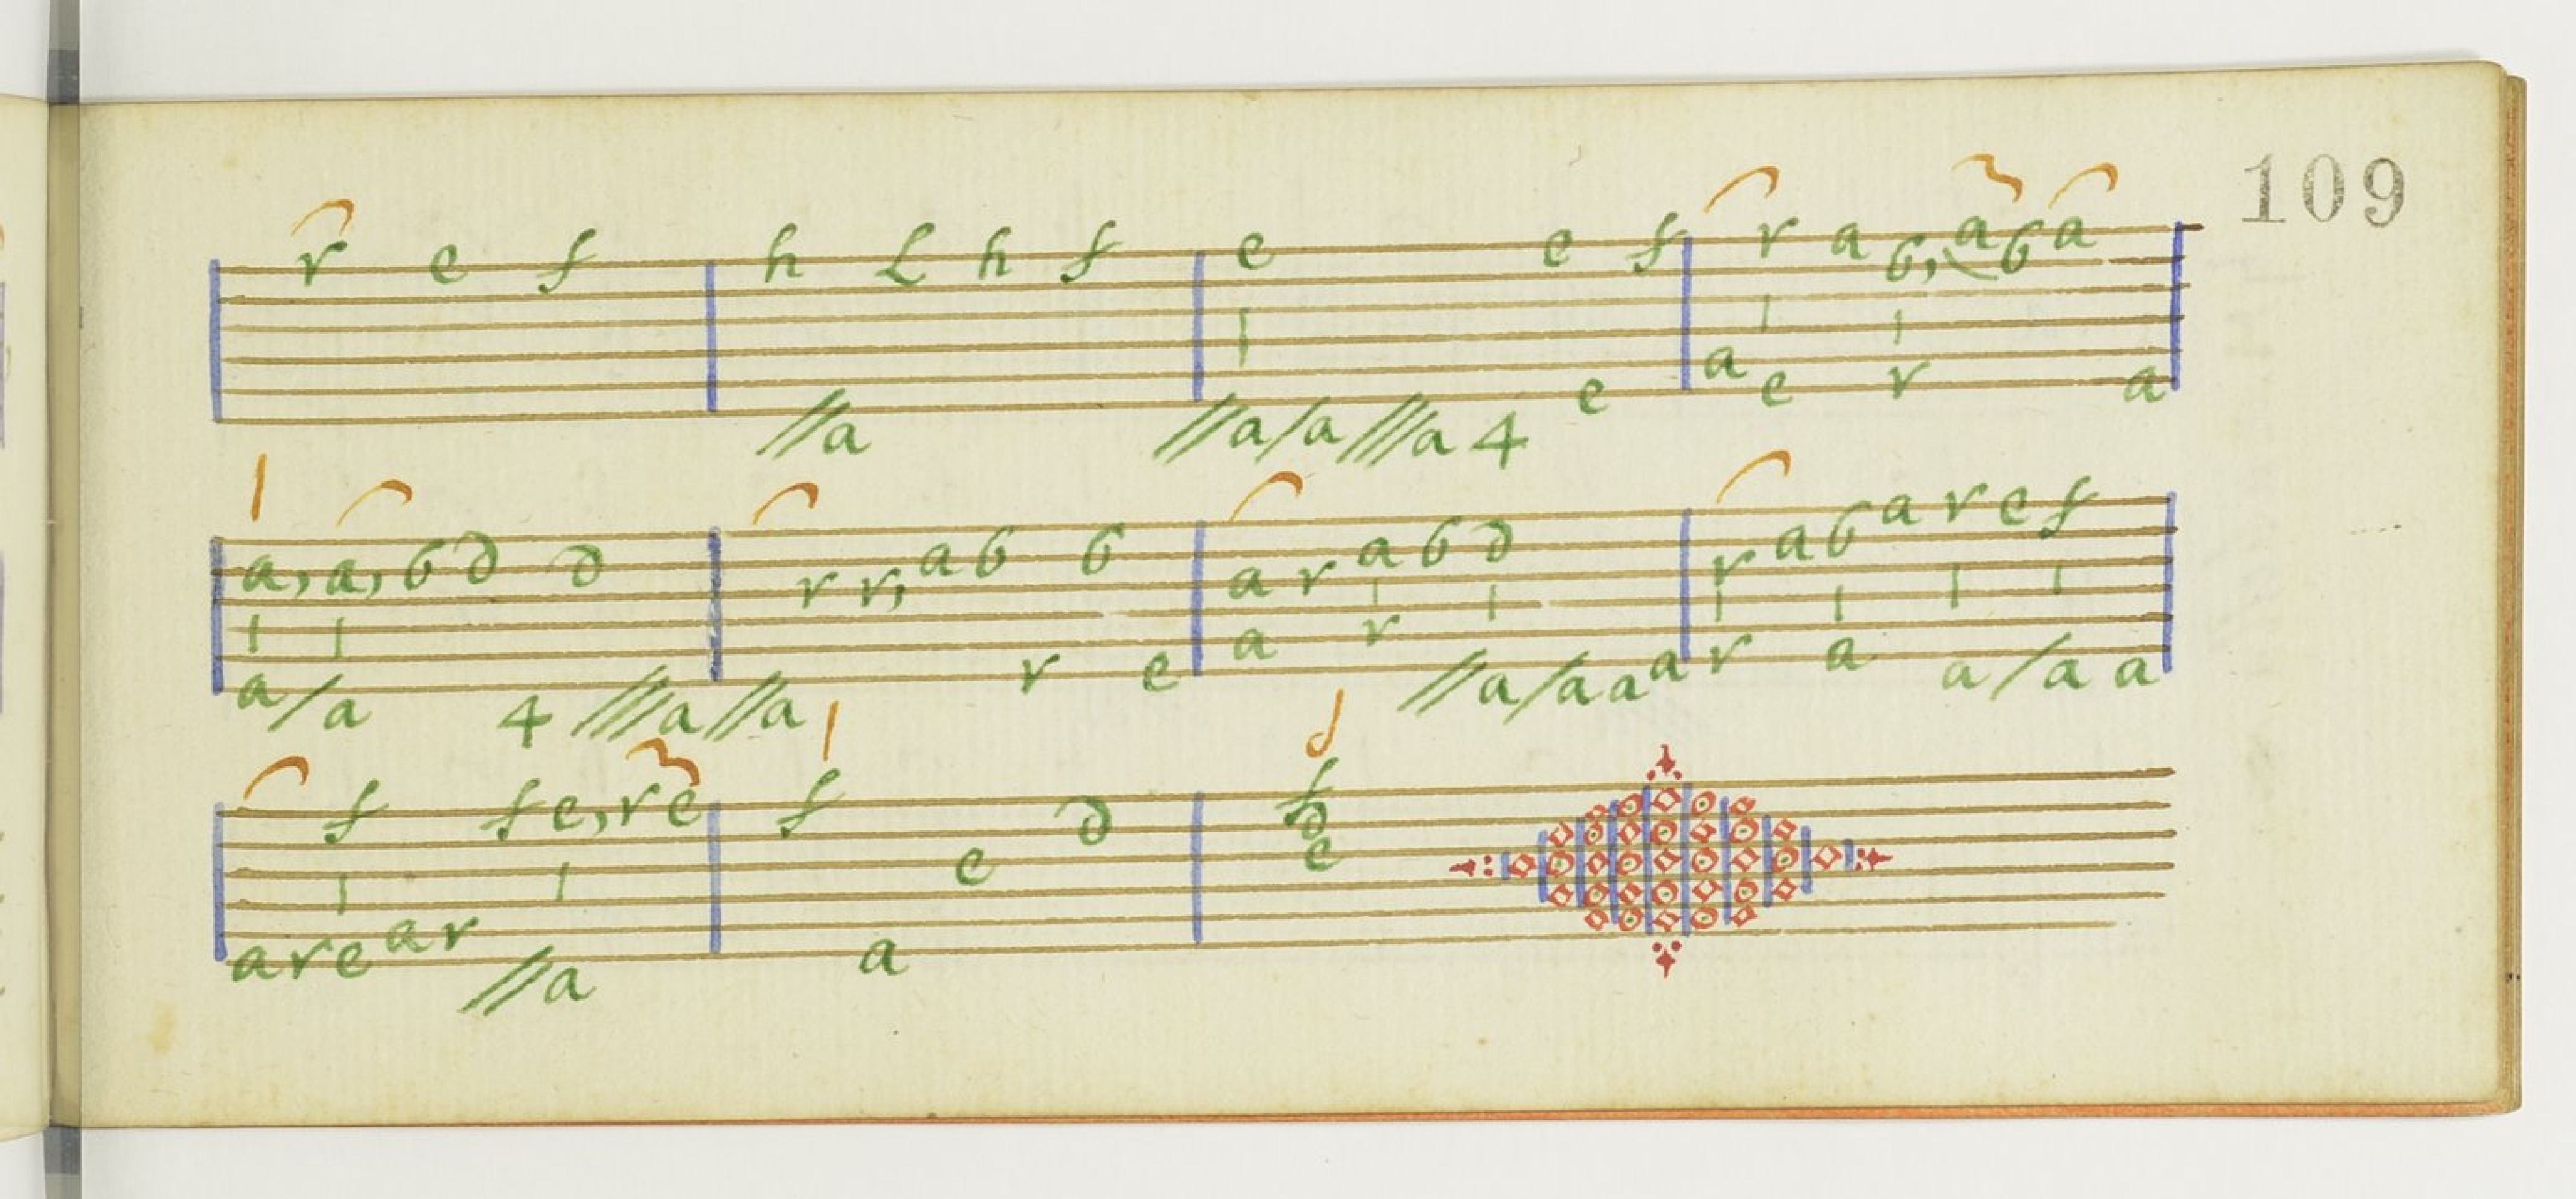 109
r e f h l h f e e f r a b, a b a
a e r a
e
//a //a /a ///a 4
a, a, b d d r r, a b b a r a b d r a b a r e f
a r r a
a /a 4 ///a //a r e //a /a a a a /a a
f f e, r e f e d f d e
a r e a r //a a